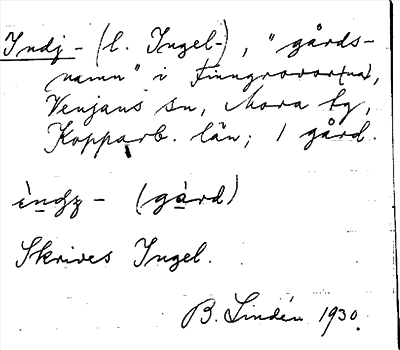 Indj - (l. Ingel-), "gårds-
namn" i Finngruvor(na),
Venjans sn, Mora tg,
Kopparb. län; 1 gård.
ìndz - (gàrd)
Skrives Ingel.
B. Lindén 1930.